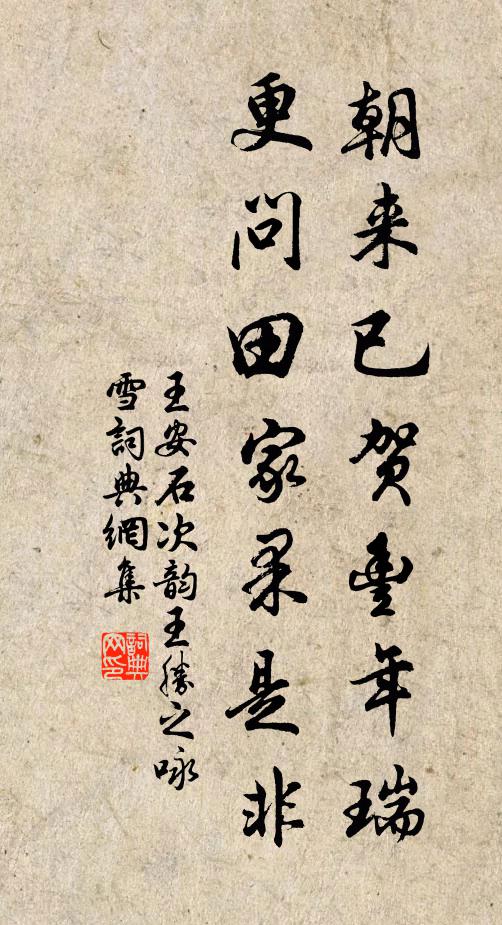 朝来已贺豊年瑞
更问田家果是非
王安石次韵王勝之咏
雪詞典網集
詞典网印